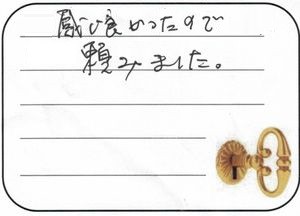 感じ良かったので
頼みました。